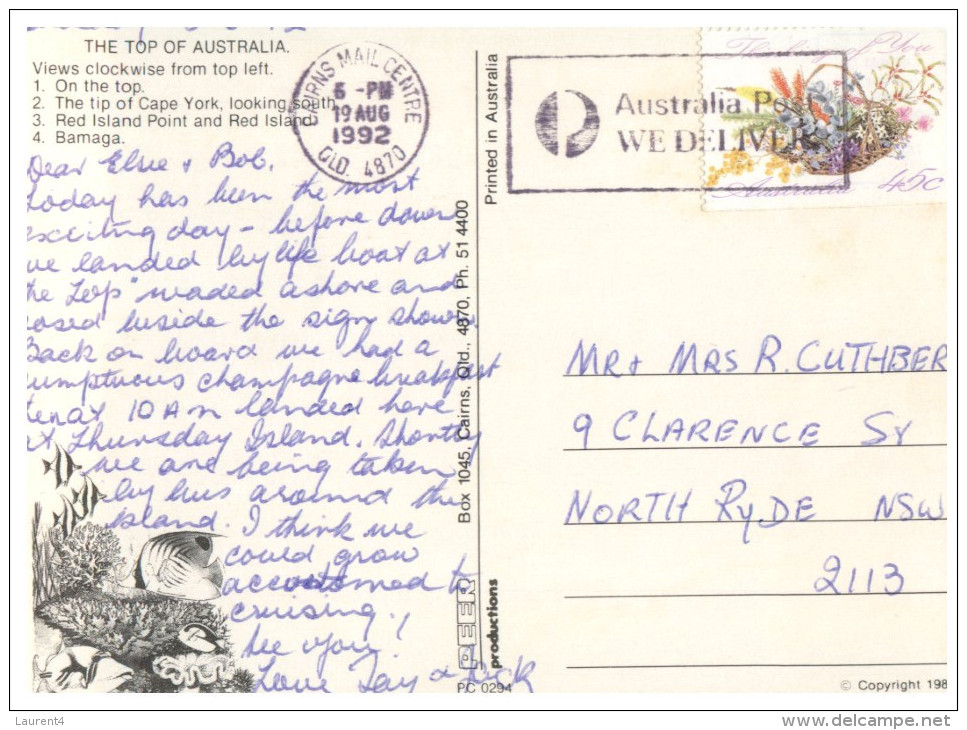 THE TOP OF AUSTRALIA.
Views clockwise from top left.
1. On the top.
2. The tip of Cape York, looking south.
3. Red Island Point and Red Island
4. Bamaga.
Dear Elsie + Bob.
Today has been the most
exciting day - before dawn
we landed by life boat at
the "Top" waded ashore and
posed beside the sign shown.
Back on board we had a
sumptuous champagne breakfast
then at 10 Am landed here
at Thursday Island. Shortly
we are being taken
by bus around the
Island. I think we
could grow
accustomed to
cruising.,
See you.
Love Jay + Dick
CAIRNS MAIL CENTRE
6 -PM
19 AUG
1992
QLD. 4870
Printed in Australia
Box 1045, Cairns, Qld., 4870, Ph. 51 4400
PEER
productions
PC 0294
Australia Post
WE DELIVER
Thinking of You
Australia
45c
MR + MRS R. CUTHBER
9 CLARENCE ST
NORTH RYDE NSW
2113
© Copyright 198
Laurent4
delcampe.net